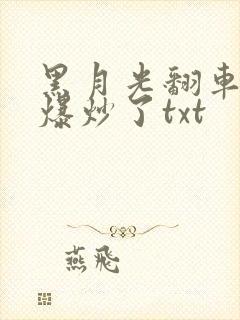 黑月光翻車
爆炒了txt
燕飛